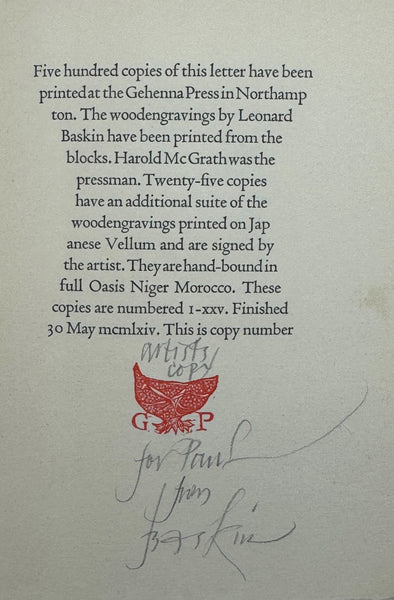 Five hundred copies of this letter have been
printed at the Gehenna Press in Northamp
ton. The woodengravings by Leonard
Baskin have been printed from the
blocks. Harold McGrath was the
pressman. Twenty-five copies
have an additional suite of the
woodengravings printed on Jap
anese Vellum and are signed by
the artist. They are hand-bound in
full Oasis Niger Morocco. These
copies are numbered I-XXV. Finished
30 May mcmlxiv. This is copy number
artists
copy
G P
for Paul
from
Baskin